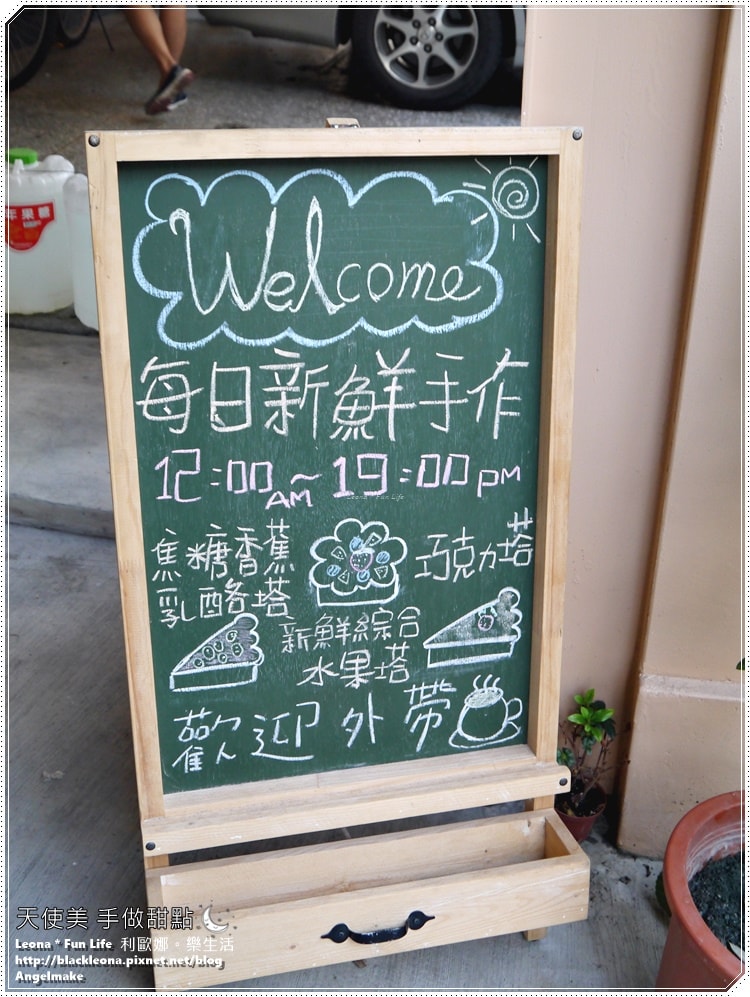 Welcome
每日新鮮手作
12:00AM~19:00pm
焦糖香蕉
乳酪塔
巧克力塔
新鮮綜合
水果塔
歡迎外帶
Leona * Fun Life
年果糖
天使美 手做甜點
Leona * Fun Life 利歐娜。樂生活
http://blackleona.pixnet.net/blog
Angelmake